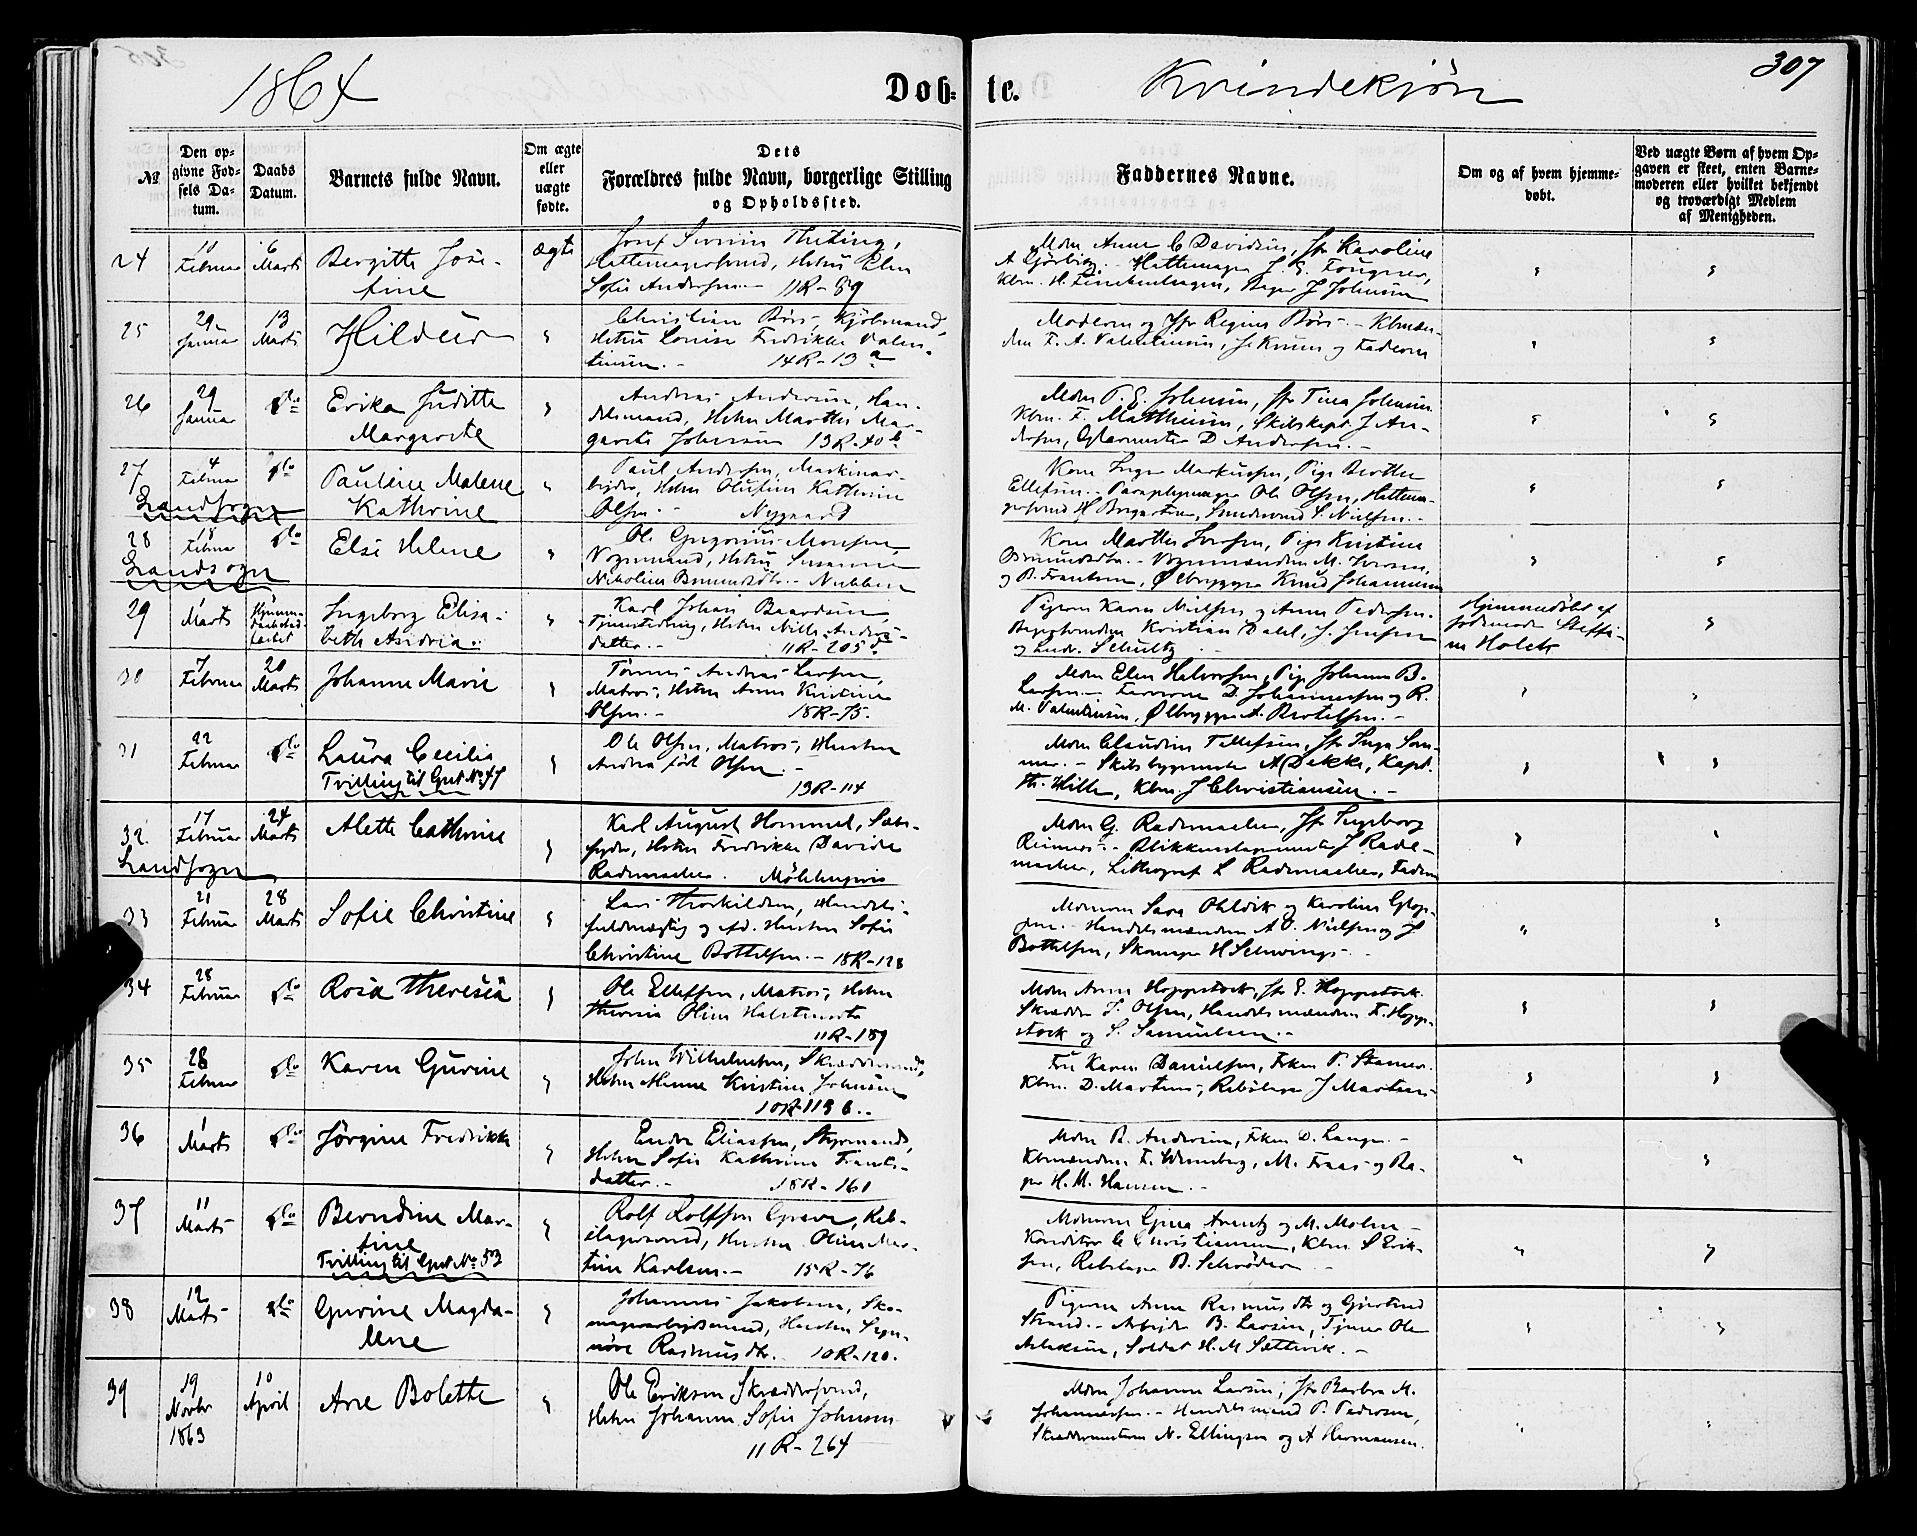 1864
Døb-te.
Kvindekjøn
307
№
Den opgivne Fødsels Datum.
Daabs Datum.
Barnets fulde Navn.
Om ægte eller uægte fødte.
Dets Forældres fulde Navn, borgerlige Stilling og Opholdssted.
Faddernes Navne.
Om og af hvem hjemmedøbt.
Ved uægte Børn af hvem Opgaven er skeet, enten Barnemoderen eller hvilket bekjendt og troværdigt Medlem af Menigheden.
24
11 Februar
6 Marts
Bergitte Jose-
fine
ægte
Hattemagersvend, Hstru Elen
Sofie Andersen - 11R-89
Mdm Anne C Davidsen, Jfr Karoline
Hattemager J. E. Fougner,
Bager J Johnsen
25
29 Januar
13 Marts
Hildur
Christian Børs, Kjøbmand,
Hstru Louise Fredrikke Valen-
tinsen. - 14R-13a
Moderen og Jfr Regine Børs. - Kbmæn-
dene F. A. Valentinsen, J. Krum og Faderen
26
29 Januar
do
Erika Juditte
Margarete
Andreas Andersen, Han-
delsmand, Hstru Marthe Mar-
garete Johnsen 13R-40b
Mdm P. E. Johnsen, Jfr Tina Johnsen
Kbm. F. Matthiesen, Skibskapt. J An-
dersen, Glarmester D Andersen. -
27
4 Februar
do
Landsogn
Pauline Malene
Kathrine
Paul Andersen, Maskinar-
beider, Hstru Olufine Kathrine
Olsen. - Nygaard
Kone Inger Markussen, Pige Berthe
Ellefsen. - Paraplymager Ole Olsen, Hattema-
gersvend H Borgersen, Smedesvend S. Nielsen. -
28
18 Februar
do
Landsogn
Else Helene
Ole Gregorius Monsen,
Vognmand, Hstru Susanne
Nikoline Bmundsdtr. - Nubben
Kone Marthe Iversen, Pige Kristine
Vognmændene M. Iversen,
og B. Frantsen, Ølbrygger Knud Johannesen
29
1 Marts
Ingeborg Elisa-
beth Andrea.
Karl Johan Baardsen
Tjenestedreng, Hstru Nille Anders-
datter. - 11R-205
Pigerne Karen Nielsen og Anne Pedersen.
Bagersvendene Kristian Dahl, J. Jensen
og Andr. Schultz
Hjemmedøbt af
Jordemoder Steffi-
ne Holck
30
7 Februar
20 Marts
Johanne Marie
Tønnes Andreas Larsen,
Matros, Hstru Anne Kristine
Olsen. - 18R-75.
Mdm Elen Halvorsen, Pige Johanne B.
Larsen. - Farverne D. Johannessen og R.
M. Valentinsen, Ølbrygger A. Bertelsen. -
31
22 Februar
do
Laura Cecilia
Tvilling til Gut No 47
Ole Olsen, Matros, Hustru
Andrea født Olsen. -
13R-114
Mdm Claudine Tellefsen, Jfr Inga Som-
mer. - Skibsbygmester A Dekke, Kapt.
Th. Hille, Kbm. J Christiansen. -
32
17 Februar
24 Marts
Landsogn
Alette Cathrine
Karl August Hommel, Sæbe-
syder, Hstru Fredrikke Davida
Rademacher. Møhlenpris
Mdm G. Rademacher, Jfr Ingeborg
Reimers. - Blikkenslagermester J Rade-
macher, Lithograf L Rademacher, Faderen
33
21 Februar
28 Marts
Sofie Christine
Lars Thorkildsen, Handels-
fuldmægtig og afd. Hustru Sofie
Christine Bottelsen. - 18R-128
Mdmerne Sara Ohldik og Karoline
Handelsmændene A O. Nielsen og J
Bottelsen, Skomager H Schwings. -
34
28 Februar
do
Rosa Theresia
Ole Ellefsen, Matros, Hstru
Theresia Oline Halstensdtr
11R-187
Mdm Anne Hoppestock, Jfr E. Hoppestock.
Skrædder J. Olsen, Handelsmændene F. Hoppe-
stock og S. Samuelsen. -
35
28 Februar
do
Karen Gurine
John Wilhelmsen, Skræddersvend,
Hstru Minna Kristine Johnsen
10R-113b. -
Fru Karen Danielsen, Frkn P. Stamer.
Kbm. D. Martens, Rebslager J Martens
36
1 Marts
do
Jørgine Fredrikke
Endre Eliassen, Styrmand,
Hstru Sofie Kathrine Frants-
datter. - 18R-161
Mdm B. Andersen, Frkn D. Lange. -
Kbmændene F. Wenneberg, M. Fraas og Ba-
ger H. M. Hansen. -
37
11 Marts
do
Berndine Mar-
tine
Tvilling til Gut No 53
Rolf Rolfsen Greve, Reb-
slagersvend, Hustru Oline Mar-
tine Karlsen. - 15R-76
Mdmerne Gjina Arentz og M. Molne -
Konditor C Christiansen, Kbm S Erik-
sen, Rebslager B. Schrøder
38
12 Marts
do
Gurine Magda-
lene
Johannes Jakobsen, Sko-
magerarbeidsmand, Hustru Syn-
nøve Rasmusdtr. 10R-120.
Pigerne Anne Rasmusdtr og Gjertrud
Strand. - Arbeider B. Larsen, Tjener Ole
Aslaksen, Soldat H. M Sættevik. -
39
19 Novbr 1863
10 April
Ane Bolette
Ole Eriksen Skræddersvend,
Hstru Johanne Sofie Johnsen
11R-264
Mdm Johanne Larsen, Jfr Barbra M.
Johannessen. - Handelsmand P. Pedersen,
Skræddermestrene N. Ellingsen og A Hermansen.